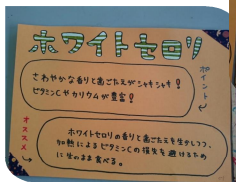 ホワイトセロリ
ポイント
さわやかな香りと歯ごたえがシャキシャキ！
ビタミンCやカリウムが豊富！
オススメ
ホワイトセロリの香りと歯ごたえを生かしつつ、
加熱によるビタミンCの損失を避けるため
に生のまま食べる。